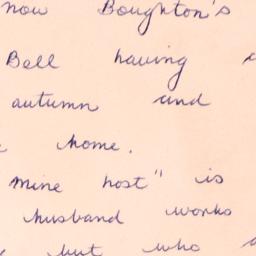 now Boughton's
Bell having
autumn and
home.
mine host" is
husband works
but who